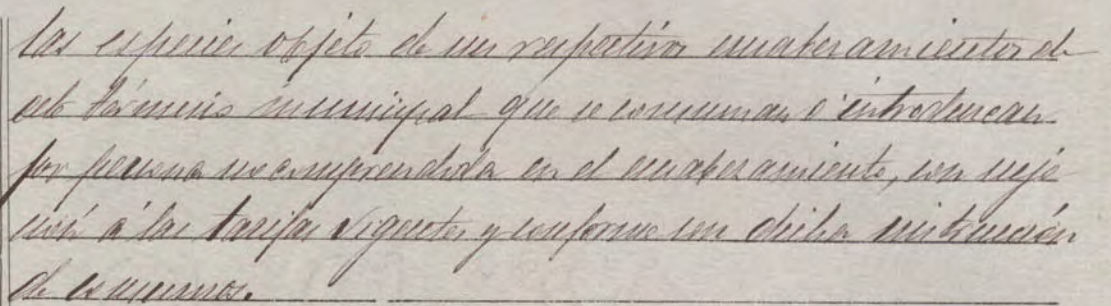 las especies objeto de sus respectivos encabezamientos de
este término municipal que se consuman o introduzcan
por personas no comprendida en el encabezamiento, con suje
ción á las tarifas vigentes y conforme con dicha instrucción
de consumos.